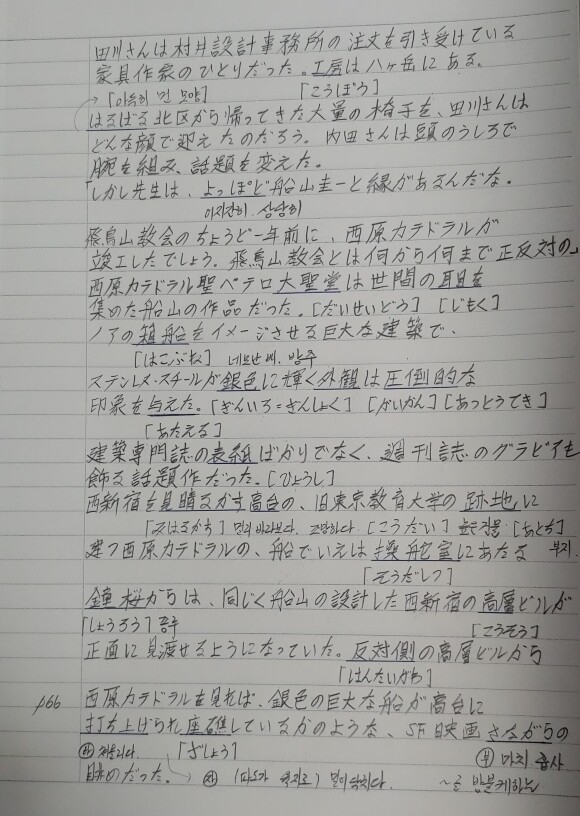 田川さんは村井設計事務所の注文を引き受けている
家具作家のひとりだった。工房は八ヶ岳にある。
→ [아득히 먼 모양] [こうぼう]
はるばる北区から帰ってきた大量の椅子を、田川さんは
どんな顔で迎えたのだろう。内田さんは頭のうしろで
腕を組み、話題を変えた。
「しかし先生は、よっぽど船山圭一と縁があるんだな。
어지간히 상당히
飛鳥山教会のちょうど一年前に、西原カテドラルが
竣工したでしょう。飛鳥山教会とは何から何まで正反対の」
西原カテドラル聖ペテロ大聖堂は世間の耳目を
集めた船山の作品だった。[だいせいどう] [じもく]
ノアの箱船をイメージさせる巨大な建築で、
[はこぶね] 네모난 배. 방주
ステンレス・スチールが銀色に輝く外観は圧倒的な
印象を与えた。[ぎんいろ=ぎんしょく] [がいかん] [あっとうてき]
[あたえる]
建築専門誌の表紙ばかりでなく、週刊誌のグラビアも
飾る話題作だった。[ひょうし]
西新宿を見晴るかす高台の、旧東京教育大学の跡地に
멀리 바라보다. 조망하다 [こうだい] [あとち]
建つ西原カテドラルの、船でいえば操舵室にあたる 부지
[そうだしつ]
鐘楼からは、同じく船山の設計した西新宿の高層ビルが
[しょうろう] 종루 [こうそう]
正面に見渡せるようになっていた。反対側の高層ビルから
[はんたいがわ]
p66 西原カテドラルを見れば、銀色の巨大な船が高台に
打ち上げられ座礁しているかのような、SF映画さながらの
[ざしょう] 부 마치 흡사
眺めだった。 (파도가 육지로) 밀어닥치다. ~을 방불케하는